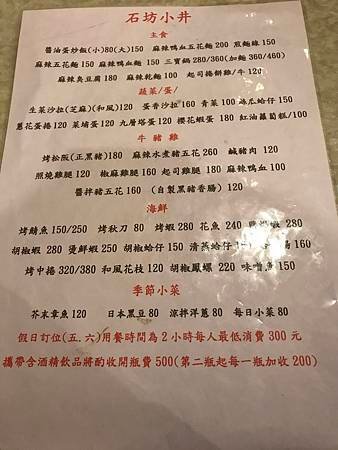 石坊小井
主食
醬油蛋炒飯(小)80(大)150 麻辣鴨血五花麵 200 煎麵線 150
麻辣五花麵 150 麻辣鴨血麵 150 三寶鍋 280/360(加麵 360/460)
麻辣臭豆腐 180 麻辣乾麵 100 起司捲餅雞/牛 120
蔬菜/蛋/
生菜沙拉(芝麻)(和風)120 蛋香沙拉 160 青菜 100 絲瓜蛤仔 150
蔥花蛋捲 100 菜埔蛋 120 九層塔蛋 120 櫻花蝦蛋 180 紅油蘿蔔糕/100
牛豬雞
烤松阪(正黑豬)180 麻辣水煮豬五花 260 鹹豬肉 120
照燒雞腿 120 椒麻雞腿 160 起司雞腿 180 麻辣鴨血 100
醬拌豬五花 160 (自製黑豬香腸) 120
海鮮
烤鯖魚 150/250 烤秋刀 80 烤蝦 280 花魚 240 280
胡椒蝦 280 燙鮮蝦 250 胡椒蛤仔 150 清蒸蛤仔 160
烤中捲 320/380 和風花枝 120 胡椒鳳螺 220 味噌魚 150
季節小菜
芥末章魚 120 日本黑豆 80 涼拌洋蔥 80 每日小菜 80
假日訂位(五.六)用餐時間為 2 小時每人最低消費 300 元
攜帶含酒精飲品將酌收開瓶費 500(第二瓶起每一瓶加收 200)